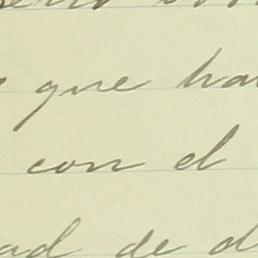 que ha
con el
ad de d